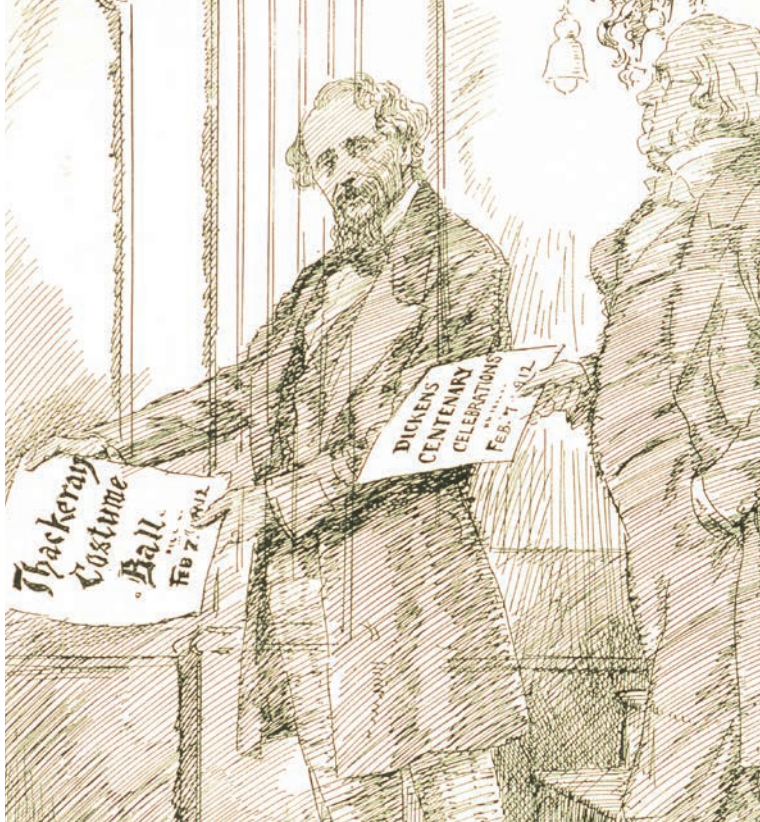 Thackeray
Costume
Ball.
FEB 7. 1912
DICKENS
CENTENARY
CELEBRATIONS
FEB. 7. 1912